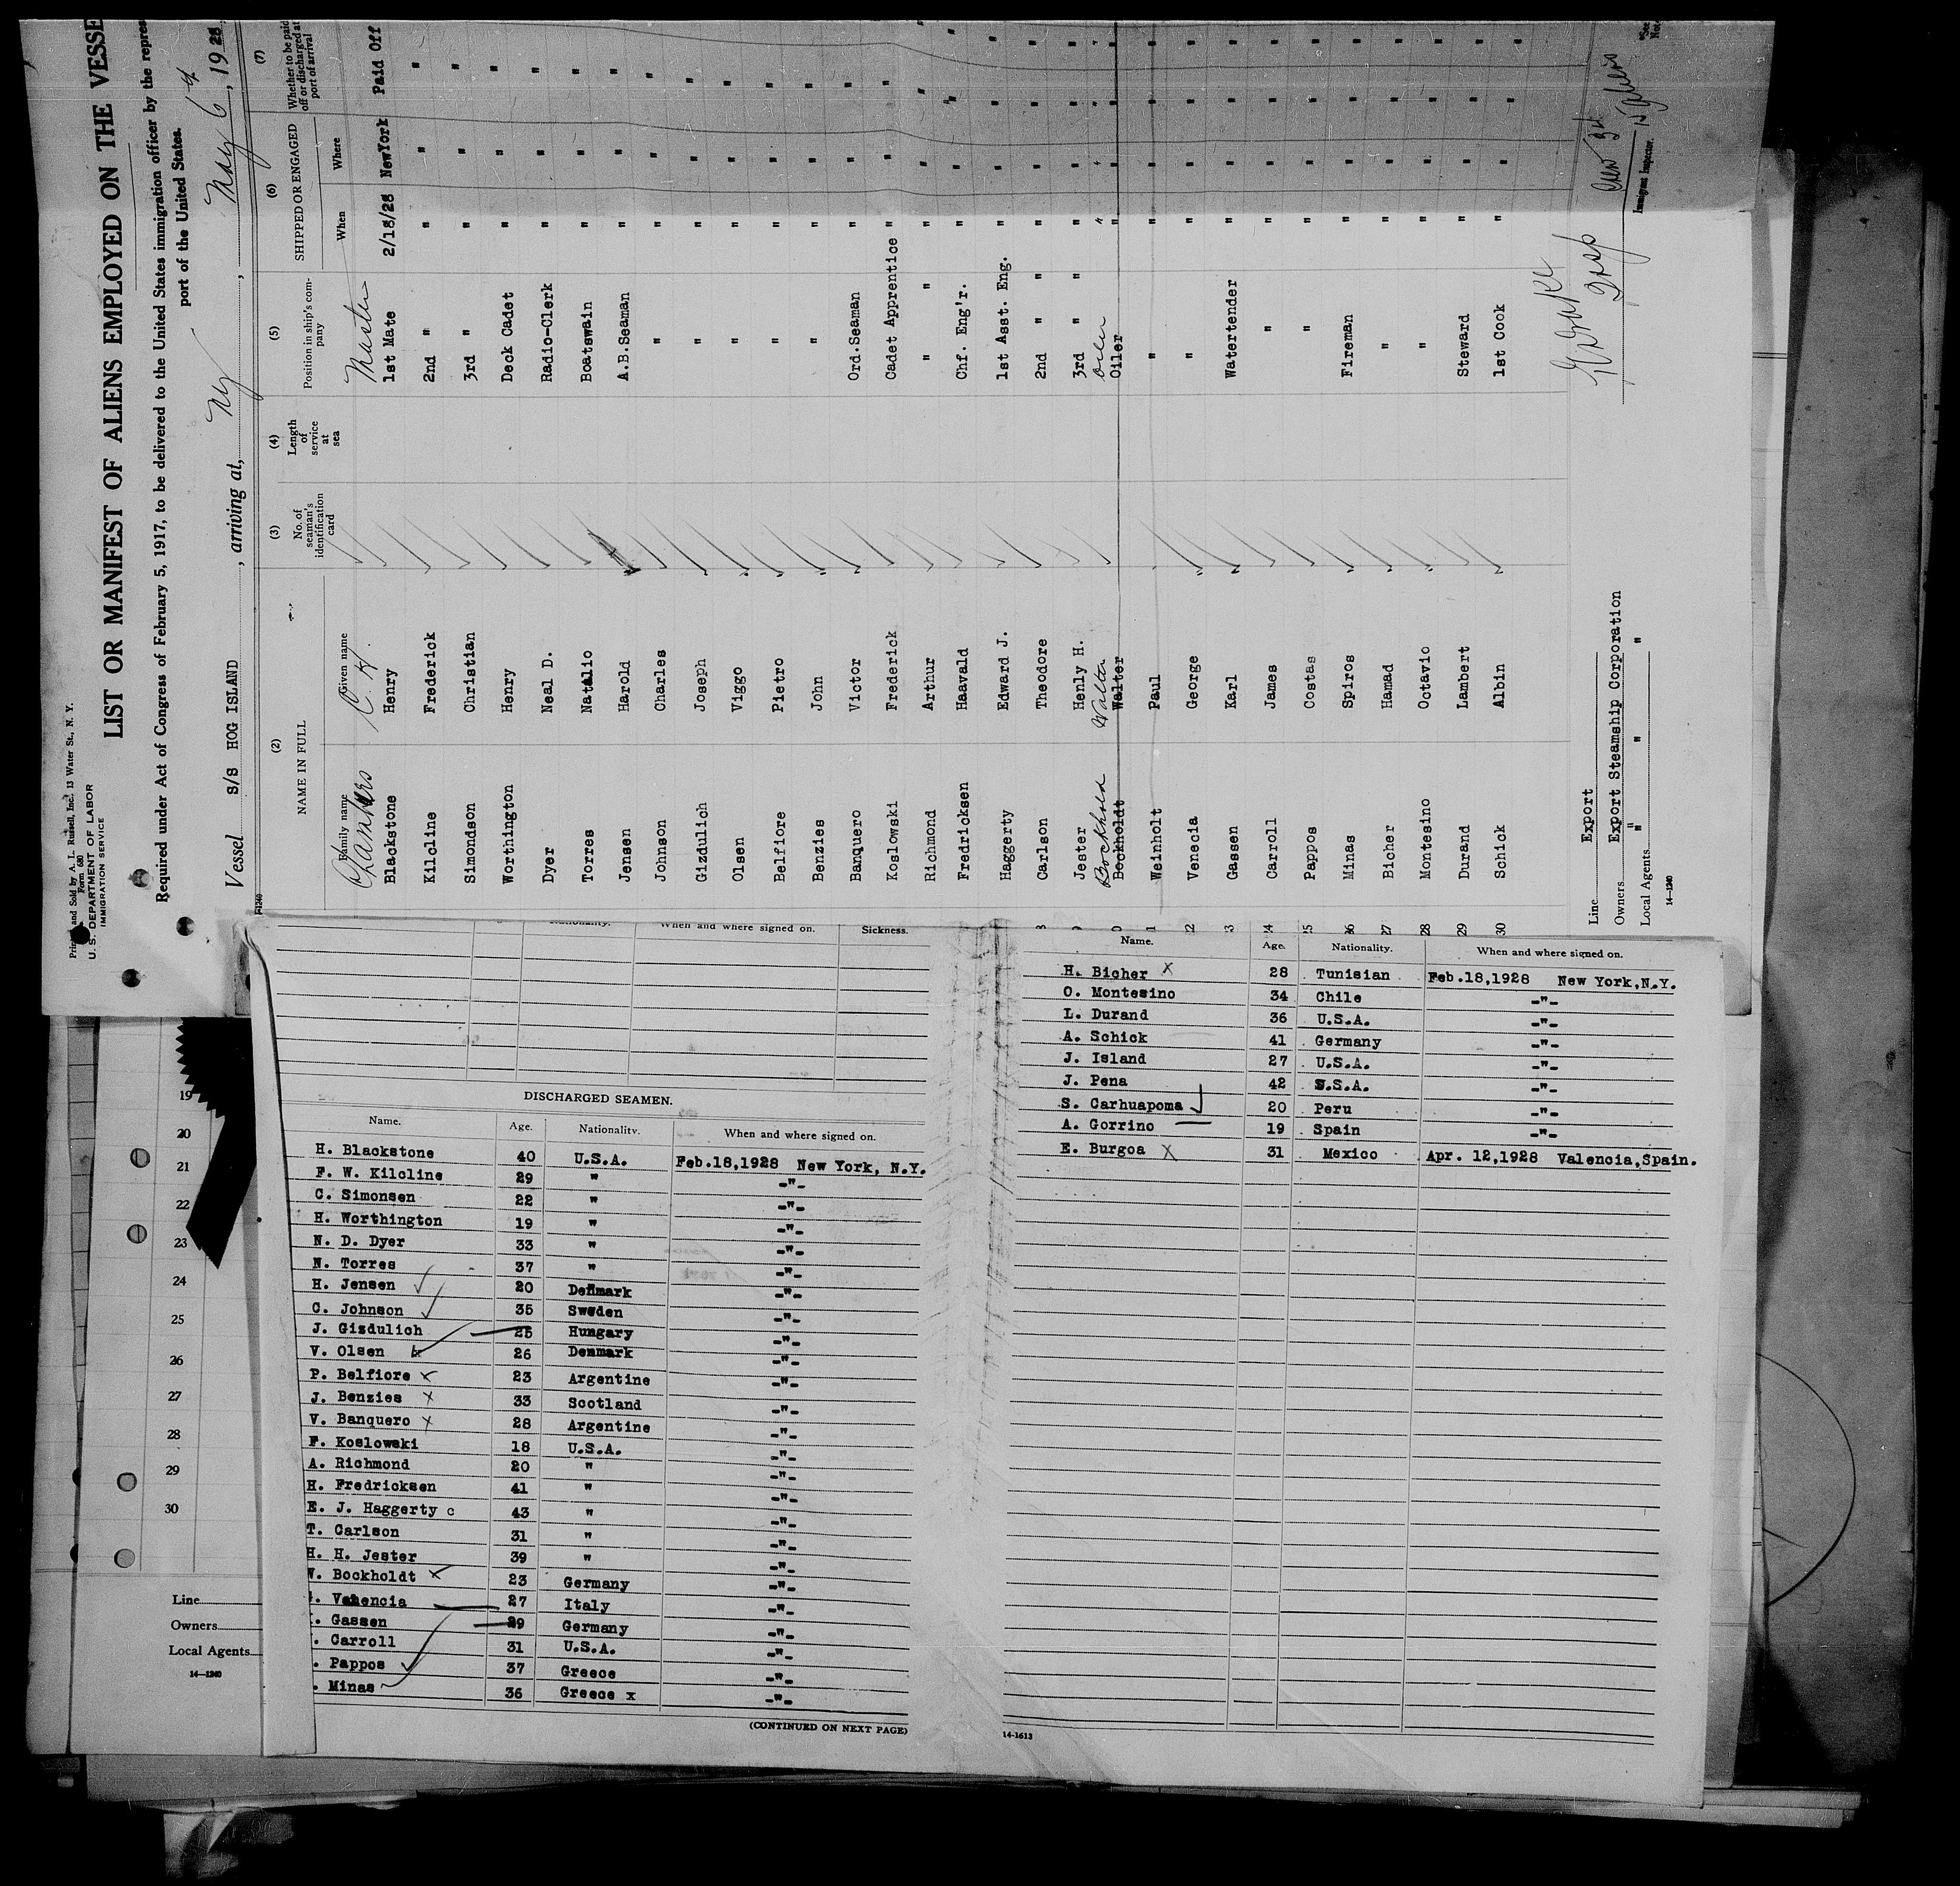 Printed and Sold by A. L. Russell, Inc., 13 Water St., N. Y.
Form 680
U. S. DEPARTMENT OF LABOR
IMMIGRATION SERVICE
LIST OR MANIFEST OF ALIENS EMPLOYED ON THE VESSE
Required under Act of Congress of February 5, 1917, to be delivered to the United States immigration officer by the repres
port of the United States.
Vessel S/S HOG ISLAND, arriving at, NY, May 6th, 1928
(2) (3) (4) (5) (6) (7)
NAME IN FULL
No. of seaman's identification card
Length of service at sea
Position in ship's company
SHIPPED OR ENGAGED
Whether to be paid off or discharged at port of arrival
Family name Given name When Where
C. H. Master
Blackstone Henry 1st Mate 2/18/28 NewYork Paid Off
Kilcline Frederick 2nd " " " "
Simondson Christian 3rd " " " "
Worthington Henry Deck Cadet " " "
Dyer Neal D. Radio-Clerk " " "
Torres Natalio Boatswain " " "
Jensen Harold A.B.Seaman " " "
Johnson Charles " " " "
Gizdulich Joseph " " " "
Olsen Viggo " " " "
Belfiore Pietro " " " "
Benzies John " " " "
Banquero Victor Ord.Seaman " " "
Koslowski Frederick Cadet Apprentice " " "
Richmond Arthur " " " " "
Fredricksen Haavald Chf. Eng'r. " " "
Haggerty Edward J. 1st Asst. Eng. " " "
Carlson Theodore 2nd " " " " "
Jester Henly H. 3rd " " " " "
Bockhold Walter Oiler " " "
Bockholdt Walter Oiler " " "
Weinholt Paul " " " "
Venecia George " " " "
Gassen Karl Watertender " " "
Carroll James " " " "
Pappos Costas " " " "
Minas Spiros Fireman " " "
Bicher Hamad " " " "
Montesino Octavio " " " "
Durand Lambert Steward " " "
Schick Albin 1st Cook " " "
Line Export
Owners Export Steamship Corporation
Local Agents " " "
14—1240
Immigrant Inspector.
Nationality. When and where signed on. Sickness.
DISCHARGED SEAMEN.
Name. Age. Nationality. When and where signed on.
H. Blackstone 40 U.S.A. Feb.18,1928 New York, N.Y.
F. W. Kilcline 29 " -"-
C. Simonsen 22 " -"-
H. Worthington 19 " -"-
N. D. Dyer 33 " -"-
N. Torres 37 " -"-
H. Jensen 20 Denmark -"-
C. Johnson 35 Sweden -"-
J. Gisdulich 25 Hungary -"-
V. Olsen 26 Denmark -"-
P. Belfiore x 23 Argentine -"-
J. Benzies x 33 Scotland -"-
V. Banquero x 28 Argentine -"-
F. Koslowski 18 U.S.A. -"-
A. Richmond 20 " -"-
H. Fredricksen 41 " -"-
E. J. Haggerty c 43 " -"-
T. Carlson 31 " -"-
H. H. Jester 39 " -"-
W. Bockholdt x 23 Germany -"-
. Valencia 27 Italy -"-
. Gassen 29 Germany -"-
. Carroll 31 U.S.A. -"-
. Pappos 37 Greece -"-
. Minas 36 Greece x -"-
(CONTINUED ON NEXT PAGE)
Name. Age. Nationality. When and where signed on.
H. Bicher x 28 Tunisian Feb.18,1928 New York,N.Y.
O. Montesino 34 Chile -"-
L. Durand 36 U.S.A. -"-
A. Schick 41 Germany -"-
J. Island 27 U.S.A. -"-
J. Pena 42 U.S.A. -"-
S. Carhuapoma 20 Peru -"-
A. Gorrino 19 Spain -"-
E. Burgoa x 31 Mexico Apr. 12,1928 Valencia,Spain.
14-1613
19
20
21
22
23
24
25
26
27
28
29
30
Line
Owners
Local Agents
14—1240